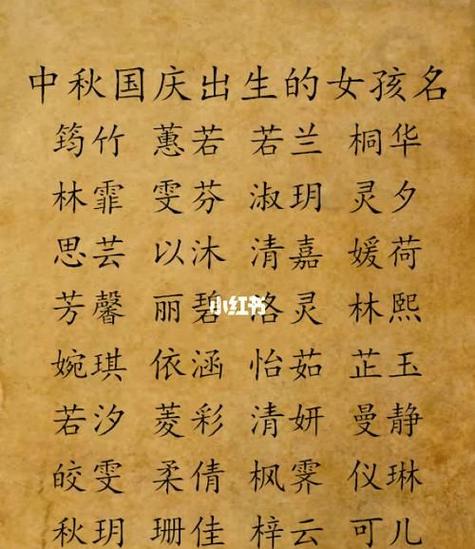 中秋国庆出生的女孩名
筠竹 蕙若 若兰 桐华
林霏 雯芬 淑玥 灵夕
思芸 以沐 清嘉 媛荷
芳馨 丽碧 洛灵 林熙
小红书
婉琪 依涵 怡茹 芷玉
若汐 菱彩 清妍 曼静
皎雯 柔倩 枫霁 仪琳
秋玥 珊佳 梓云 可儿